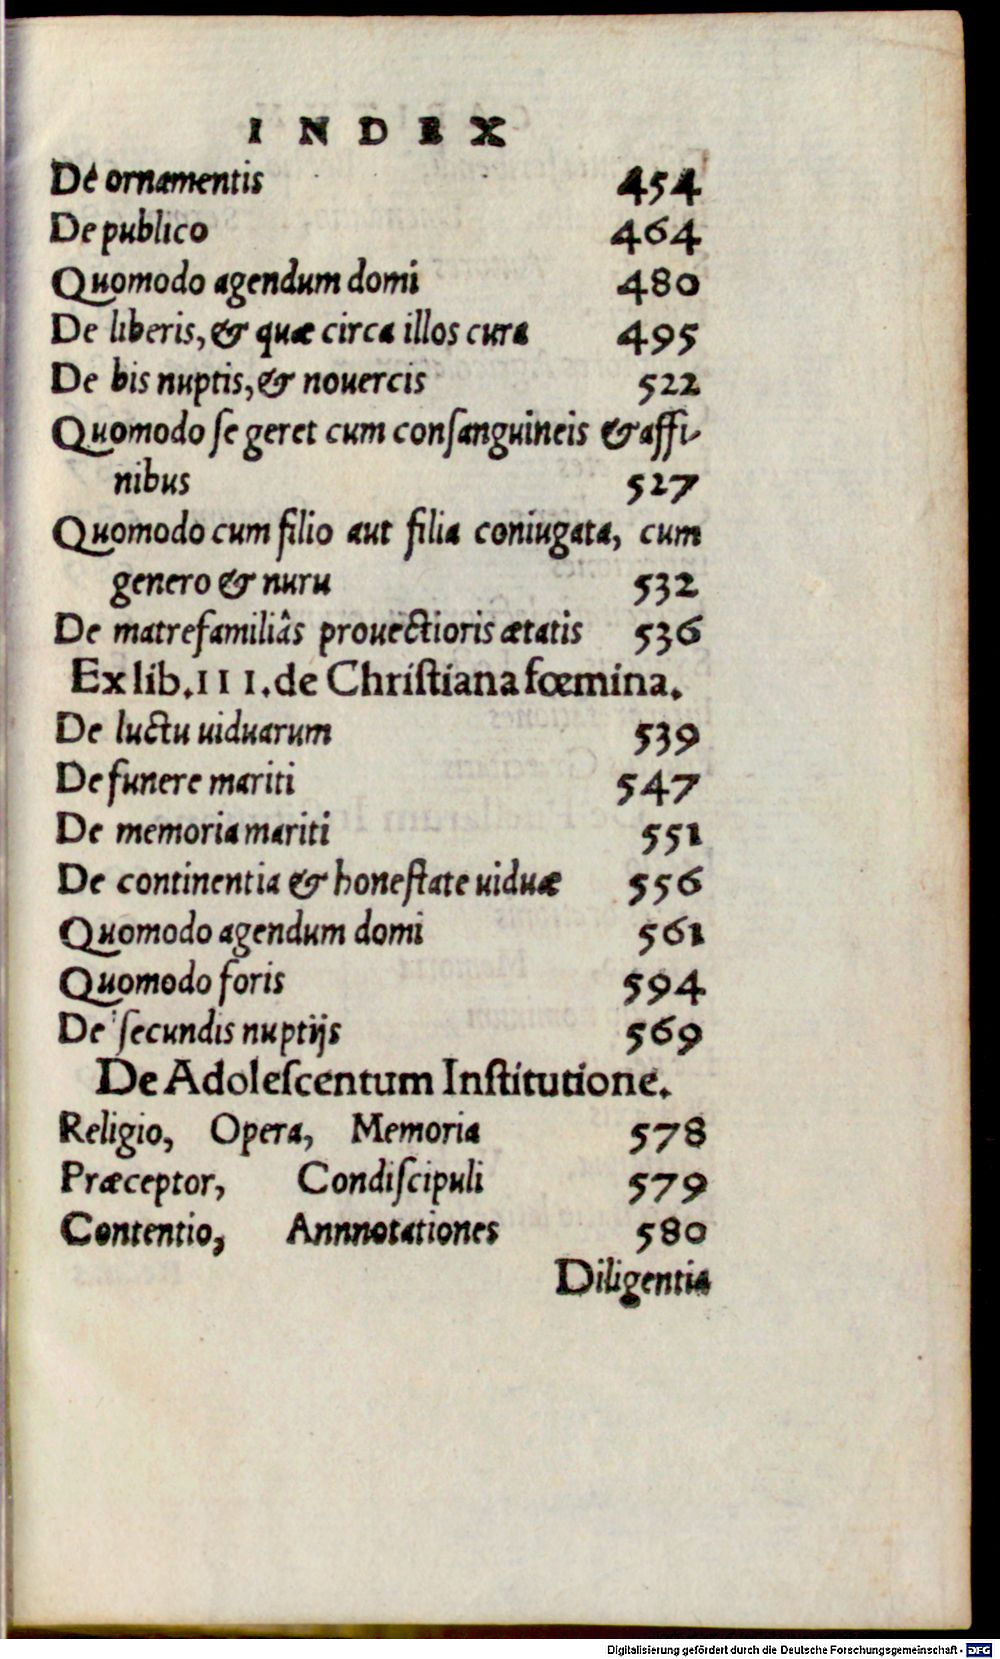 INDEX
De ornamentis 454
De publico 464
Quomodo agendum domi 480
De liberis, & quæ circa illos cura 495
De bis nuptis, & nouercis 522
Quomodo ſe geret cum conſanguineis & affi-
nibus 527
Quomodo cum filio aut filia coniugata, cum
genero & nuru 532
De matrefamiliâs prouectioris ætatis 536
Ex lib. III. de Chriſtiana fœmina.
De luctu uiduarum 539
De funere mariti 547
De memoria mariti 551
De continentia & honeſtate uiduæ 556
Quomodo agendum domi 561
Quomodo foris 594
De ſecundis nuptijs 569
De Adoleſcentum Inſtitutione.
Religio, Opera, Memoria 578
Præceptor, Condiſcipuli 579
Contentio, Annnotationes 580
Diligentia
Digitalisierung gefördert durch die Deutsche Forschungsgemeinschaft - DFG